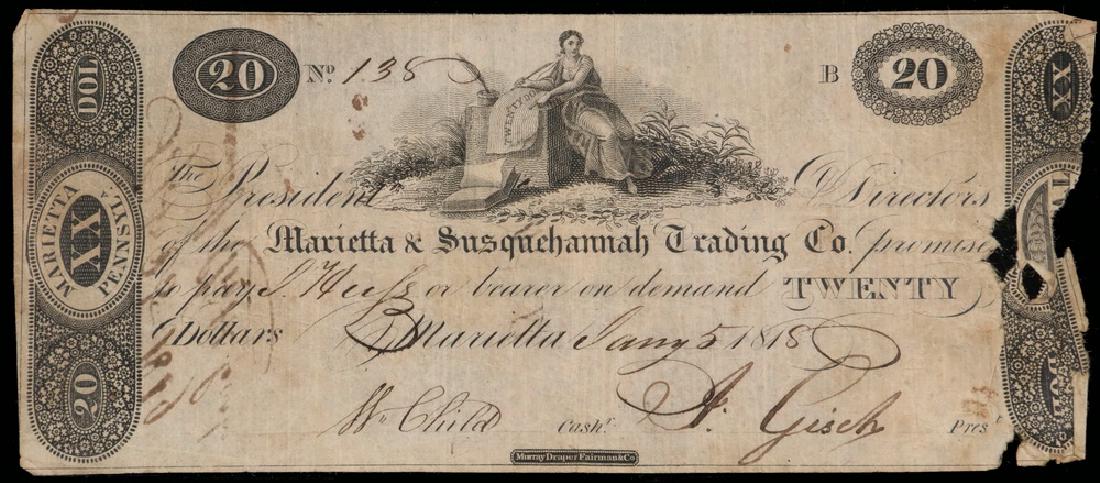 DOL
20
No. 138
B
20
XX
TWENTY
The President & Directors
MARIETTA
XX
PENNSYLVA
of the Marietta & Susquehannah Trading Co. promise
to pay J. Huss or bearer on demand TWENTY
Dollars Marietta Jany 5 1818
20
Wm Child Cashr. A. Gisch Prest
Murray Draper Fairman & Co